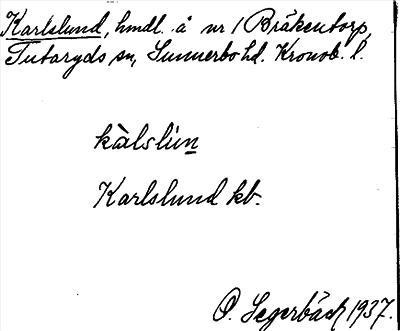 Karlslund, hmdl. å nr 1 Bräkentorp,
Tutaryds sn, Sunnerbo hd. Kronob. l.
kàlslùn
Karlslund kb.
O. Segerbäck 1937.